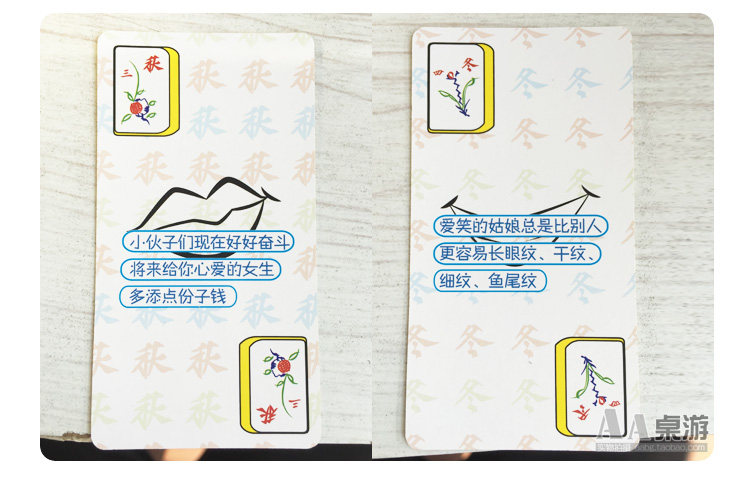 三
小伙子们现在好好奋斗
将来给你心爱的女生
多添点份子钱
三
冬
四
爱笑的姑娘总是比别人
更容易长眼纹、干纹、
细纹、鱼尾纹
冬
四
AA桌游